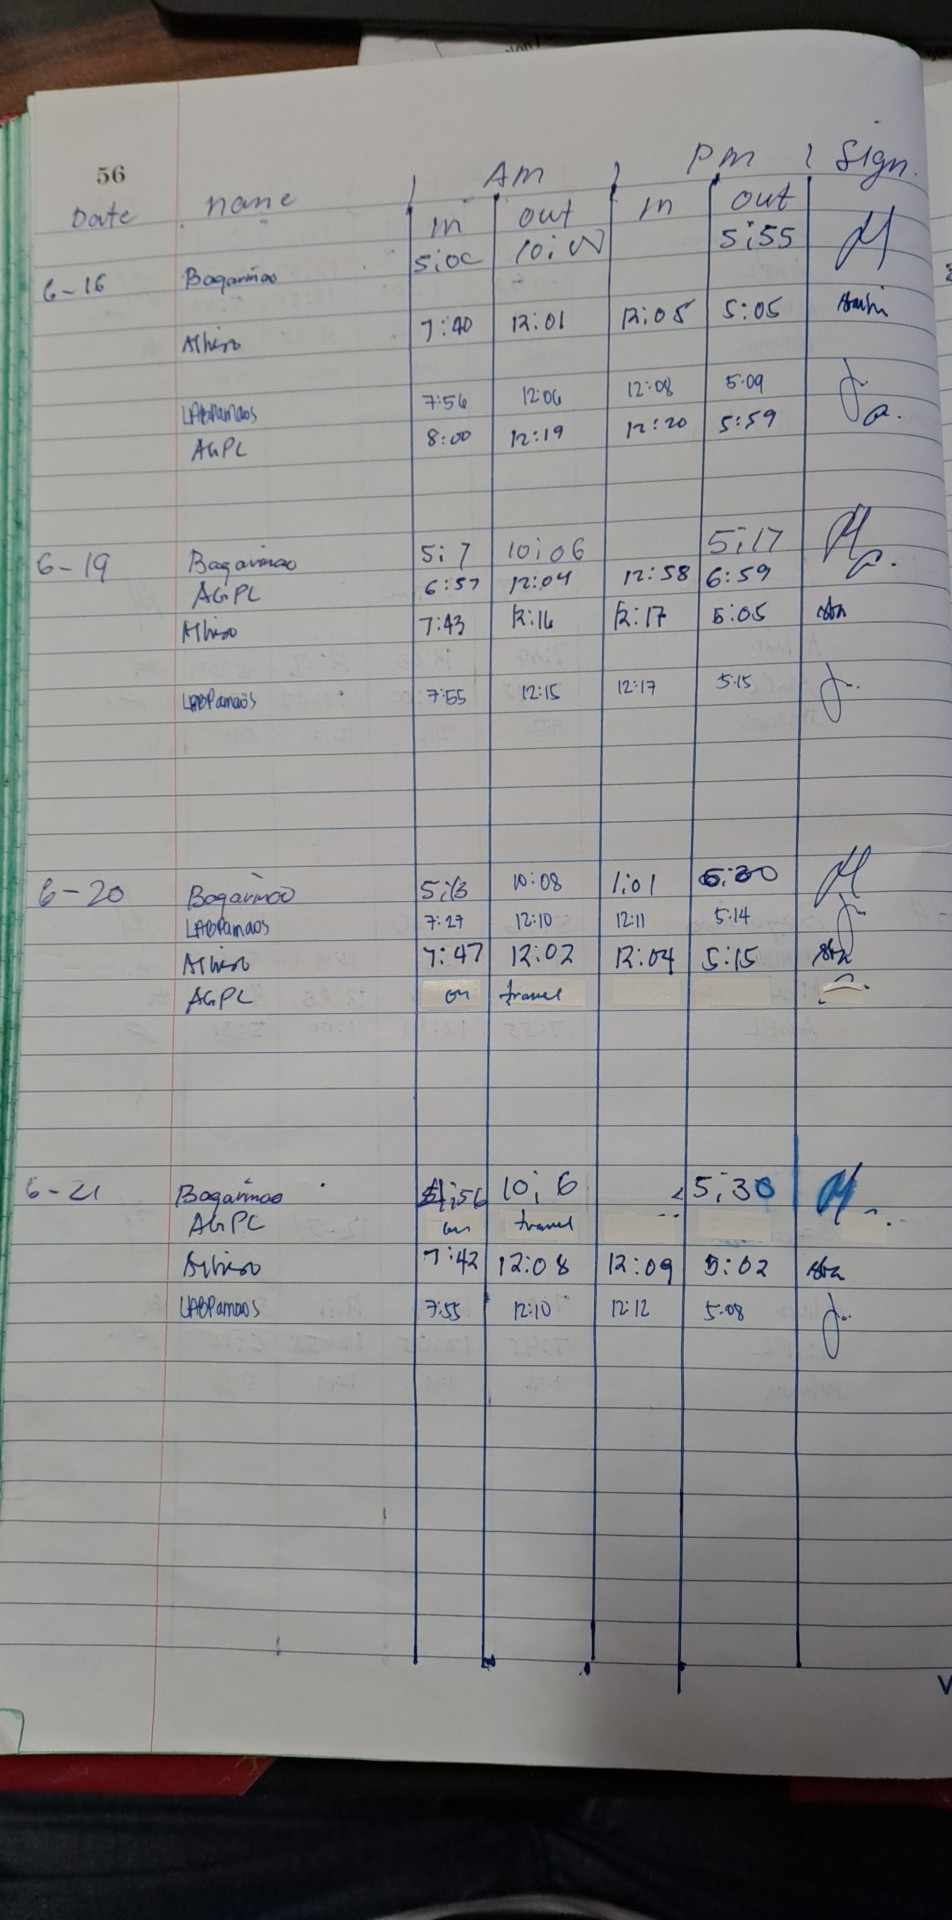 56
Am Pm Sign.
Date name in out in out
6-16 Bagarinao 5:00 10:00 5:55
7:40 12:01 12:05 5:05
LABPamaos 7:56 12:06 12:08 5:09
AGPL 8:00 12:19 12:20 5:59
6-19 Bagarinao 5:7 10:06 5:17
AGPL 6:57 12:04 12:58 6:59
7:43 12:16 12:17 5:05
LABPamaos 7:55 12:15 12:17 5:15
6-20 Bagarinao 10:08 1:01
LABPamaos 7:27 12:10 12:11 5:14
7:47 12:02 12:04 5:15
AGPL on travel
6-21 Bagarinao 10:6 5:30
AGPL on travel
7:42 12:08 12:09 5:02
LABPamaos 7:55 12:10 12:12 5:08